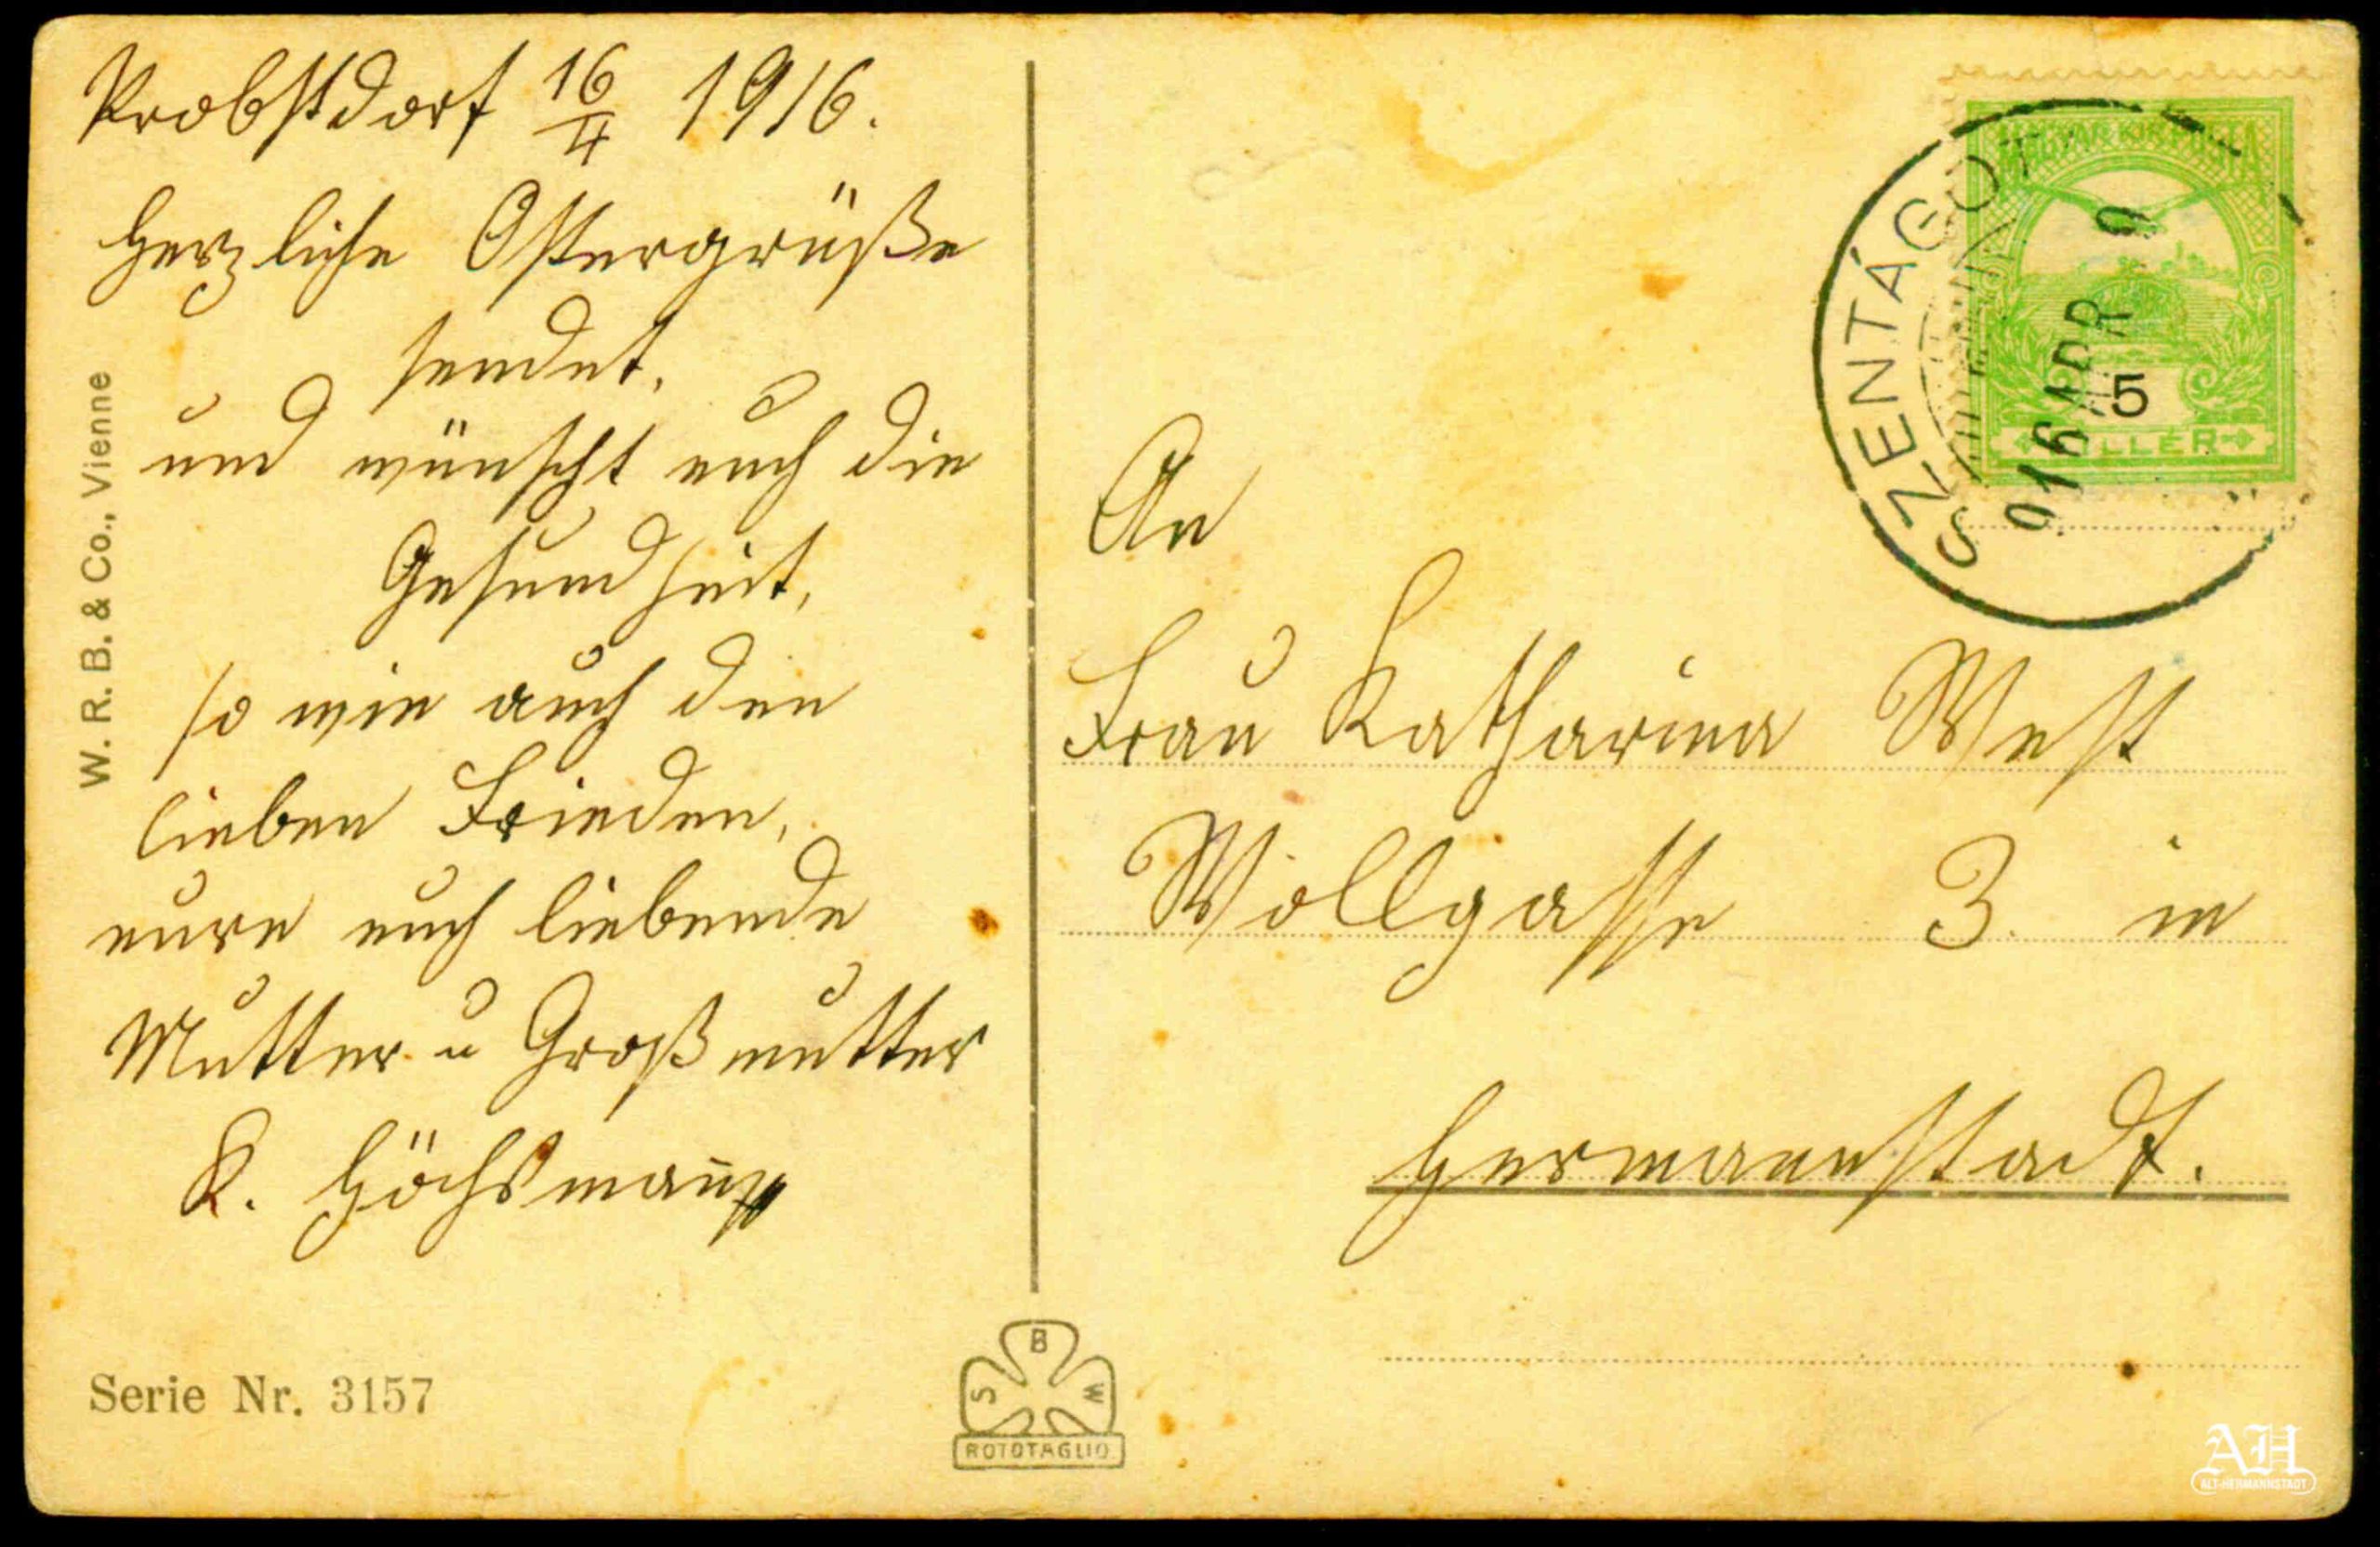 Probstdorf 16/4 1916.
Herzliche Ostergrüße
sendet,
und wünscht euch die
Gesundheit,
so wie auch den
lieben Frieden,
eure euch liebende
Mutter u Großmutter
K. Höchsman̄
W. R. B. & Co., Vienne
Serie Nr. 3157
B
S W
ROTOTAGLIO
MAGYAR KIR POSTA
5
SZENTÁGOTA
916 APR
An
Frau Katharina West
Wollgasse 3. in
Hermannstadt.
AH
ALT-HERMANNSTADT